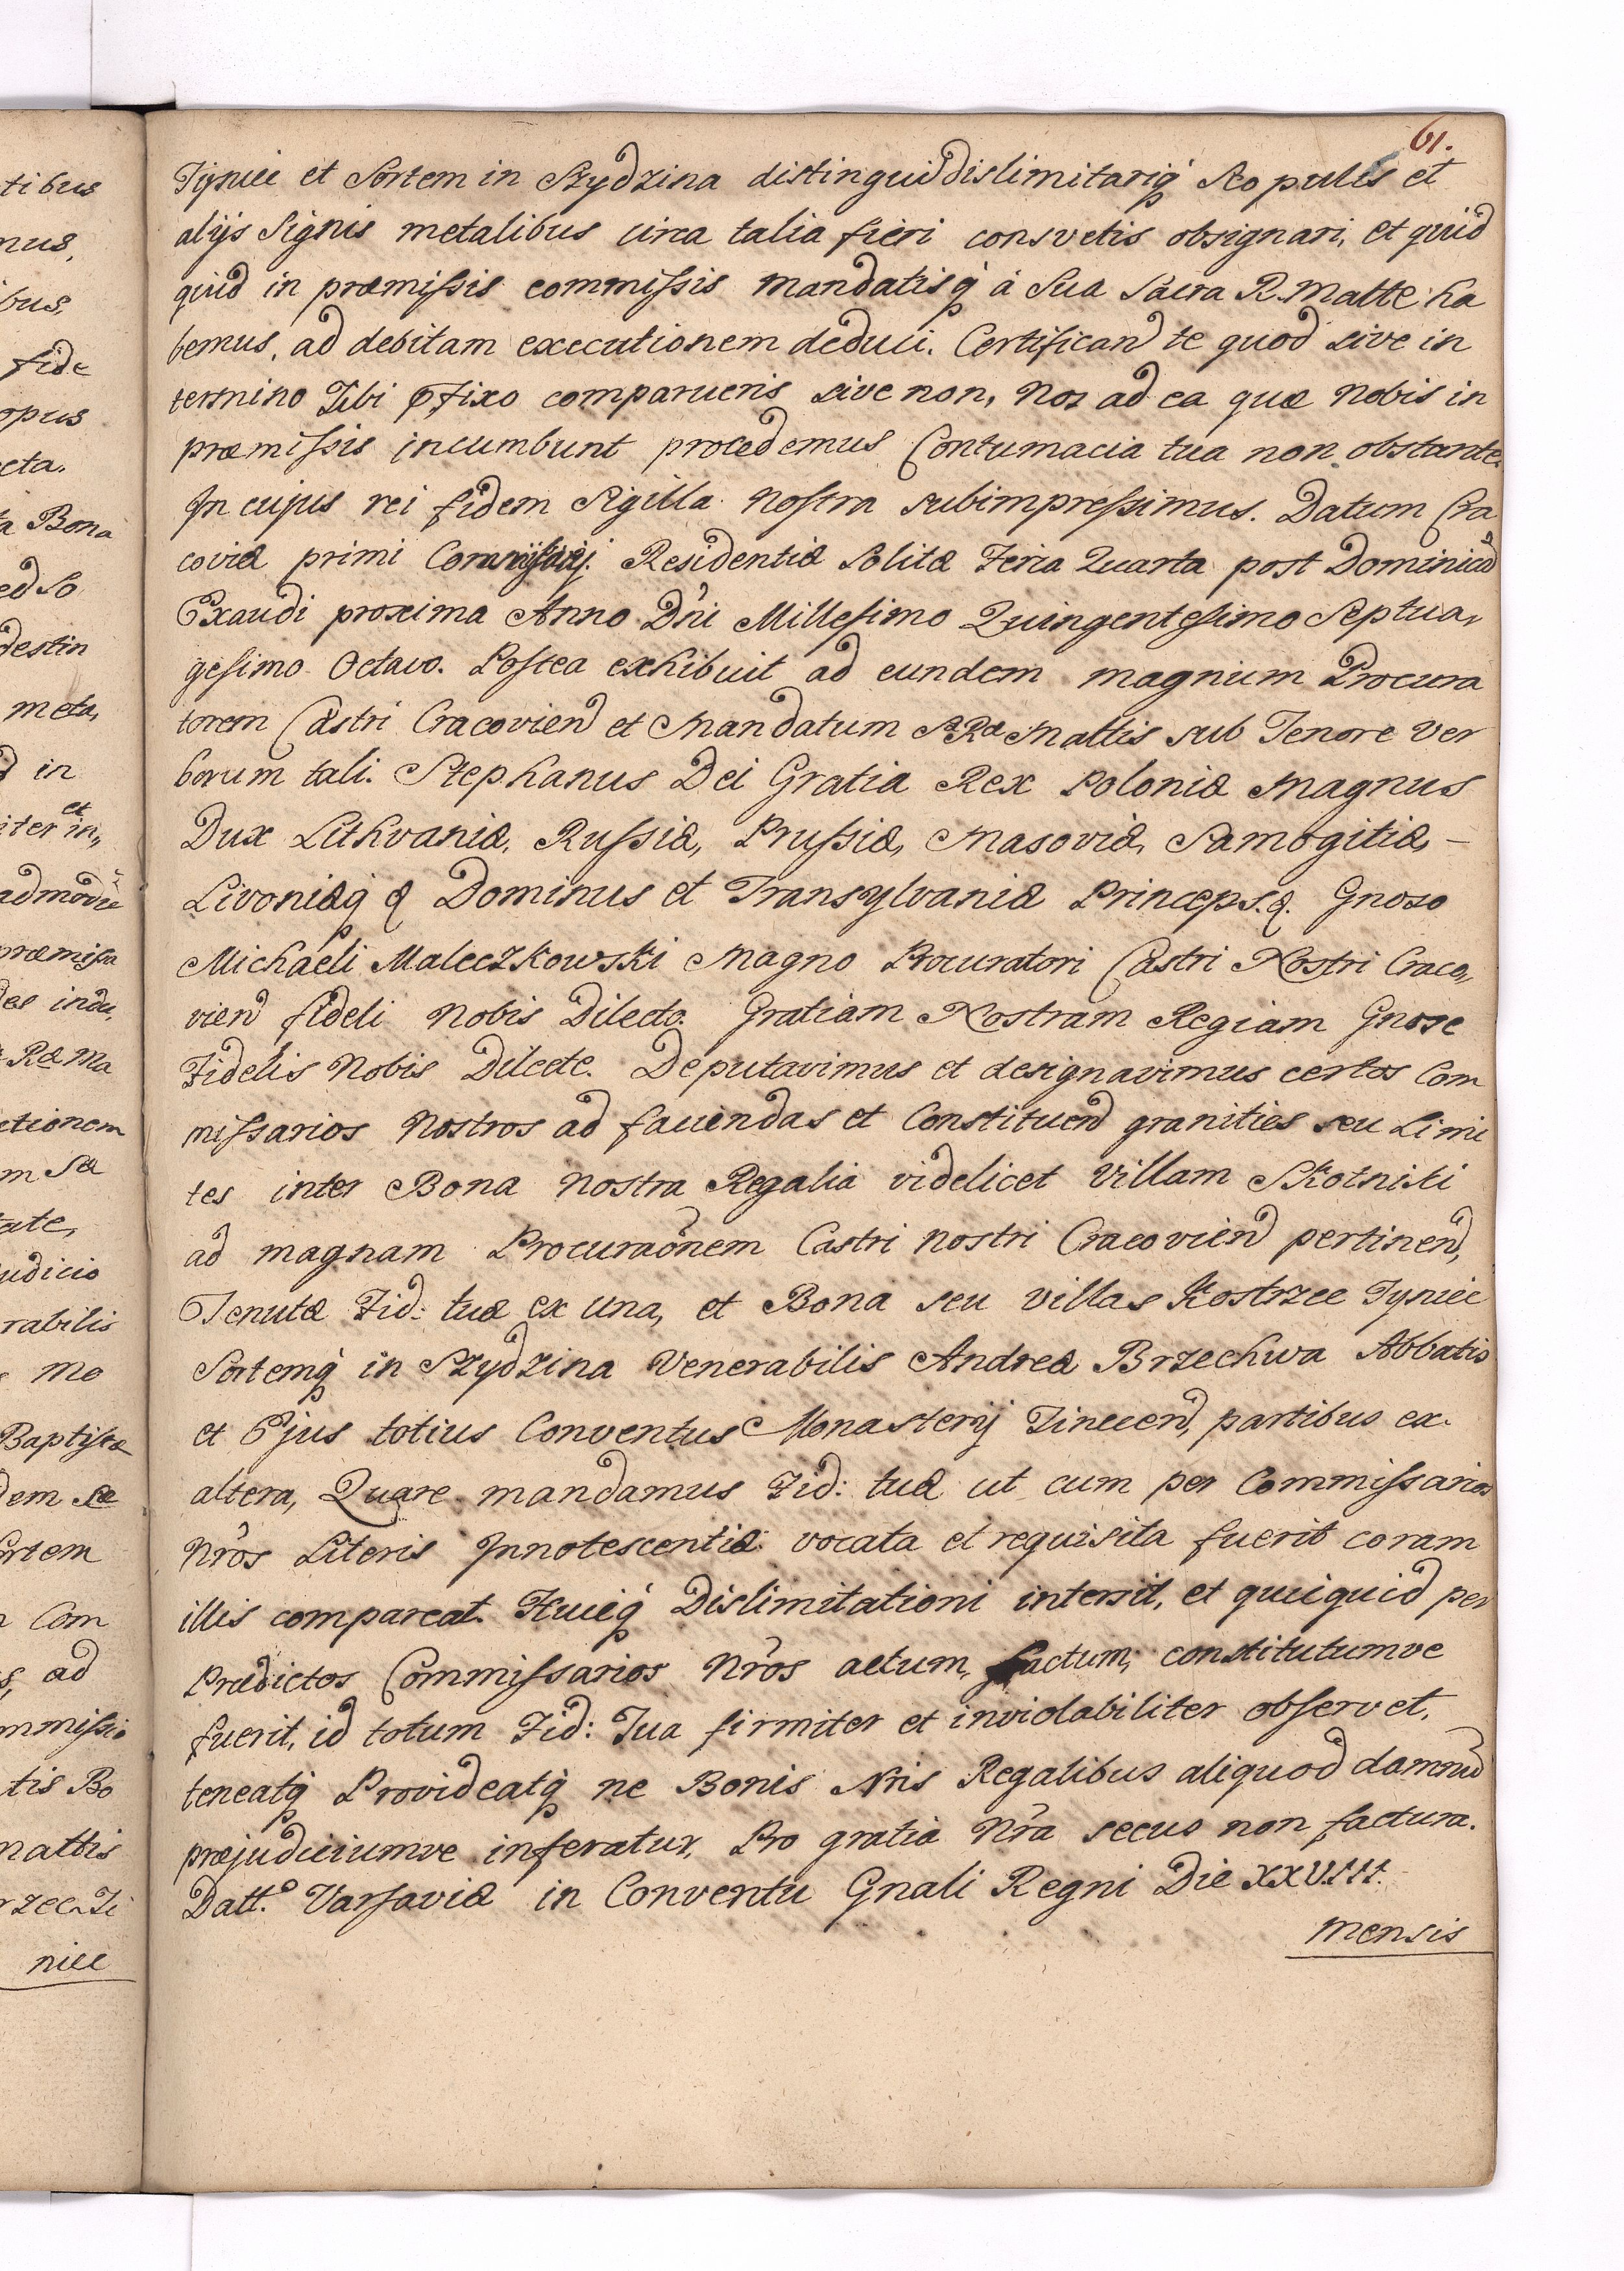 61.
Tyniec et Sortem in Szydzina distingui dislimitariq́ Scopulis et
alijs Signis metalibus circa talia fieri consvetis obsignari, et quid
quid in præmissis commissis mandatisq́ á Sua Sacra R. Matte ha
bemus, ad debitam executionem deduci. Certificand te quod sive in
termino Tibi pfixo comparueris sive non, Nos ad ea quæ Nobis in
præmissis incumbunt procedemus Contumacia tua non obstante.
In cujus rei fidem Sigilla nostra subimpressimus. Datum Cra
coviæ primi Commissarij Residentiæ Solitæ Feria Quarta post Dominicã
Exaudi proxima Anno Dńi Millesimo Quingentesimo Septua,
gesimo Octavo. Postea exhibuit ad eundem magnum Procura
torem Castri Cracoviend et Mandatum S Ræ Mattis sub Tenore Ver
borum tali. Stephanus Dei Gratia Rex Poloniæ Magnus
Dux Lithvaniæ, Russiæ, Prussiæ, Masoviæ, Samogitiæ, –
Livoniæq́ & Dominus et Transylvaniæ Princeps. &. Gnoso
Michaeli Maleczkowski Magno Procuratori Castri Nostri Craco,
viend fideli Nobis Dilecto. Gratiam Nostram Regiam Gnose
Fidelis Nobis Dilecte. Deputavimus et designavimus certos Com
missarios Nostros ad faciendas et Constituend granities seu Limi
tes inter Bona Nostra Regalia videlicet Villam Skotniki
ad magnam Procuraõnem Castri nostri Cracoviend pertinend,
Tenutæ Fid: tuæ ex una, et Bona seu villas Kostrzec Tyniec
Sortemq́ in Szydzina Venerabilis Andreæ Brzechwa Abbatis
et Ejus totius Conventus Monasterij Tinecend, partibus ex
altera, Quare mandamus Fid: tuæ ut cum per Commissarios
Nr̃os Literis Innotescentiæ vocata et requisita fuerit coram
illis compareat. Huicq́ Dislimitationi intersit, et quicquid per
Prædictos Commissarios Nr̃os actum, factum, constitutumve
fuerit, id totum Fid: Tua firmiter et inviolabiliter observet,
teneatq́ Provideatq́ ne Bonis Nris Regalibus aliquod damnũ
præjudiciumve inferatur, Pro gratia Nr̃a secus non factura.
Datt.º Varsaviæ in Conventu Gnali Regni Die XXVIII.
mensis